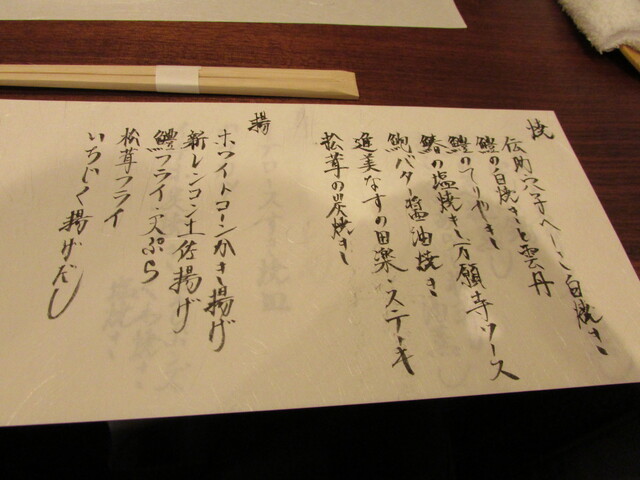 焼
伝助穴子へしこ白焼き
鱧の白焼きと雲丹
鱧のてりやき
鰆の塩焼き万願寺ソース
鮑バター醤油焼き
進美なすの田楽・ステーキ
松茸の炭焼き
揚
ホワイトコーンかき揚げ
新レンコン土佐揚げ
鱧フライ・天ぷら
松茸フライ
いちじく揚げだし